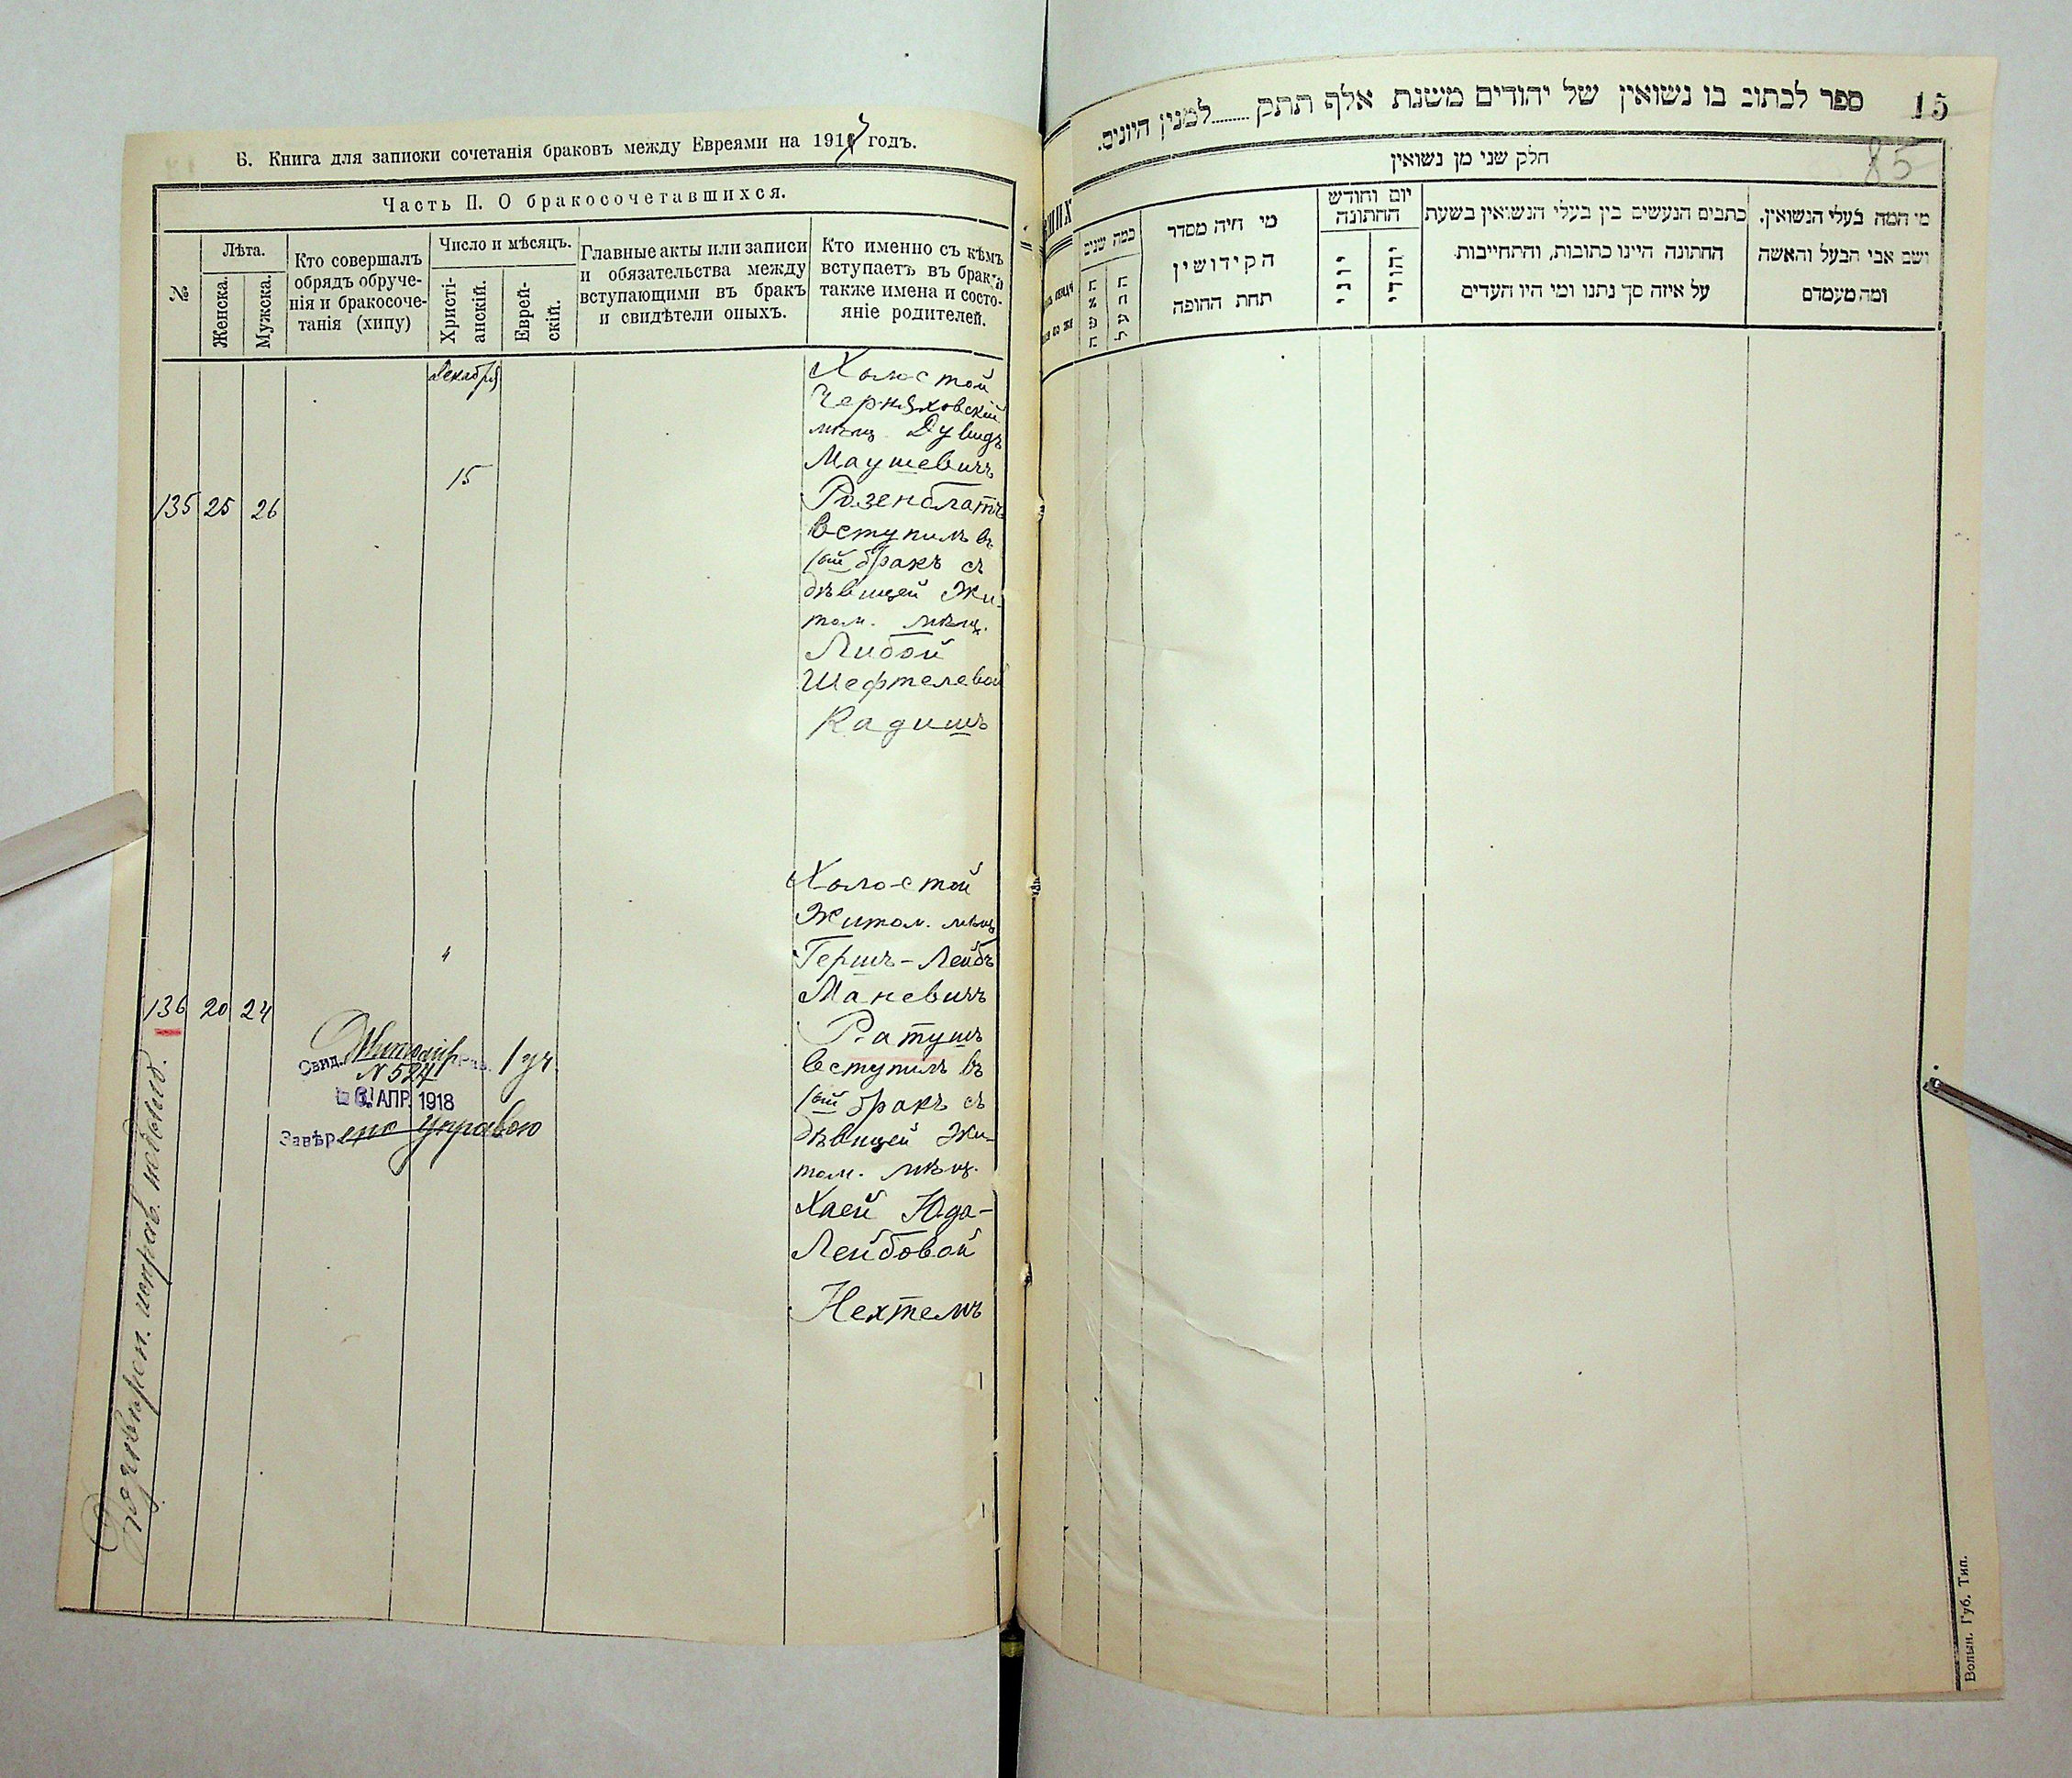 Б. Книга для записки сочетанія браковъ между Евреями на 1917 годъ.
Часть II. О бракосочетавшихся.
№
Лѣта.
Женска.
Мужска.
Кто совершалъ
обрядъ обруче-
нія и бракосоче-
танія (хипу)
Число и мѣсяцъ.
Христі-
анскій.
Еврей-
скій.
Главные акты или записи
и обязательства между
вступающими въ бракъ
и свидѣтели оныхъ.
Кто именно съ кѣмъ
вступаетъ въ бракъ а
также имена и состо-
яніе родителей.
Декабря
15
135 25 26
Холостой
Черняховскій
мѣщ. Дувидъ
Маушевичъ
Розенблатъ
вступилъ въ
1ый бракъ съ
дѣвицей Жи-
том. мѣщ.
Либой
Шефтелевой
Кадишъ
4
136 20 24
Холостой
Житом. мѣщ.
Гершъ-Лейбъ
Маневичъ
Ратушъ
вступилъ въ
1ый бракъ съ
дѣвицей Жи-
том. мѣщ.
Хаей Юда-
Лейбовой
Нехтемъ
Свид. Житомір 1 уч
N 524
АПР. 1918
Завѣрено управою
ספר לכתוב בו נשואין של יהודים משנת אלף תתק........למנין היונים.
15
85
חלק שני מן נשואין
כמה שנים
האשה
הבעל
מי חיה מסדר
הקידושין
תחת החופה
יום וחודש
החתונה
יוני
יהודי
כתבים הנעשים בין בעלי הנשואין בשעת
החתונה היינו כתובות, והתחייבות
על איזה סך נתנו ומי היו העדים
מי המה בעלי הנשואין.
ושם אבי הבעל והאשה
ומה מעמדם
Волын. Губ. Тип.